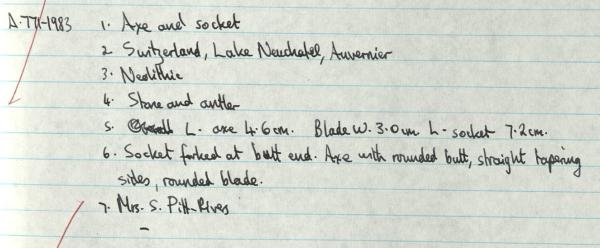 1. Axe and socket
2. Switzerland, Lake Neuchatel, Auvernier
3. Neolithic
4. Stone and antler
5. L. axe 4.6cm. Blade W. 3.0cm L. socket 7.2cm.
6. Socket forked at butt end. Axe with rounded butt, straight tapering
sides, rounded blade.
7. Mrs. S. Pitt-Rivers